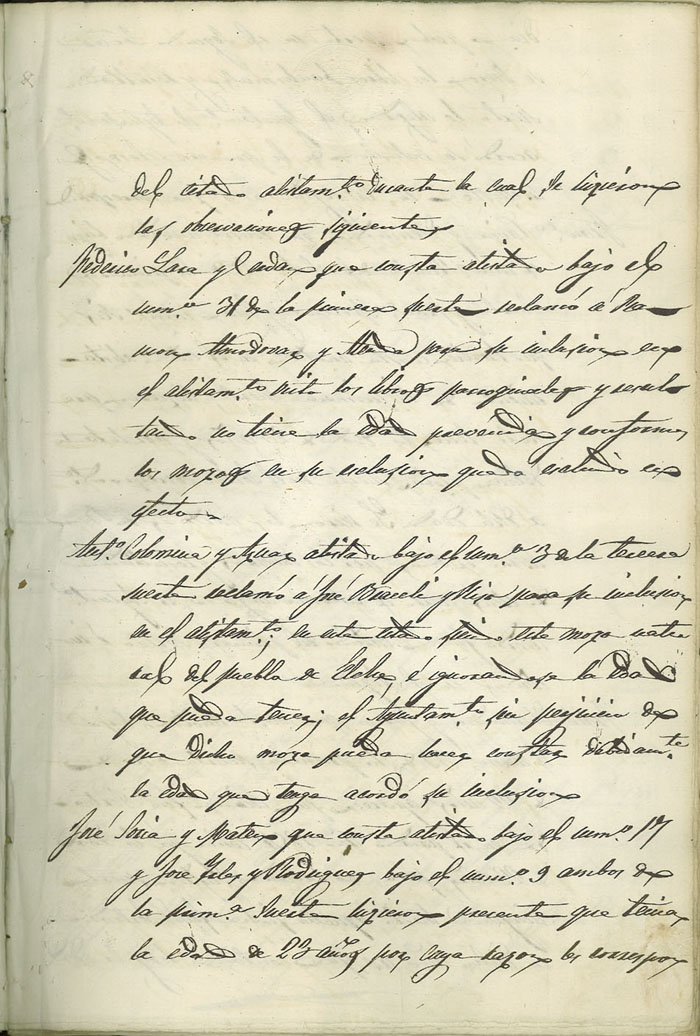 del citado alistam.to durante la cual se hicieron
las observaciones siguientes
Federico Lara y Cerdax que consta alistado bajo el
num.o 31 de la primera suerte reclamó á Ra-
mon Almodovar y para su inclusion en
el alistam.to visto los libros parroquiales y resul-
tando no tiene la edad prevenida y conformes
los mozos en su esclusion queda escluido en
efecto
Ant.o Colomina y alistado bajo el num.o 3 de la tercera
suerte reclamó á José Braceli y Rijo para su inclusion
en el alistam.to; en este este mozo natu
ral del pueblo de Elche é ignorandose la edad
que pueda tener; el Ayuntam.to sin perjuicio de
que dicho mozo pueda hacer constar debidam.te
la edad que tenga acordó su inclusion
José Soria y Mateo que consta alistado bajo el num.o 17
y José y Rodriguez bajo el num.o 9 ambos de
la prim.a suerte hicieron presente que tenian
la edad de 23 años por cuya razon les correspon